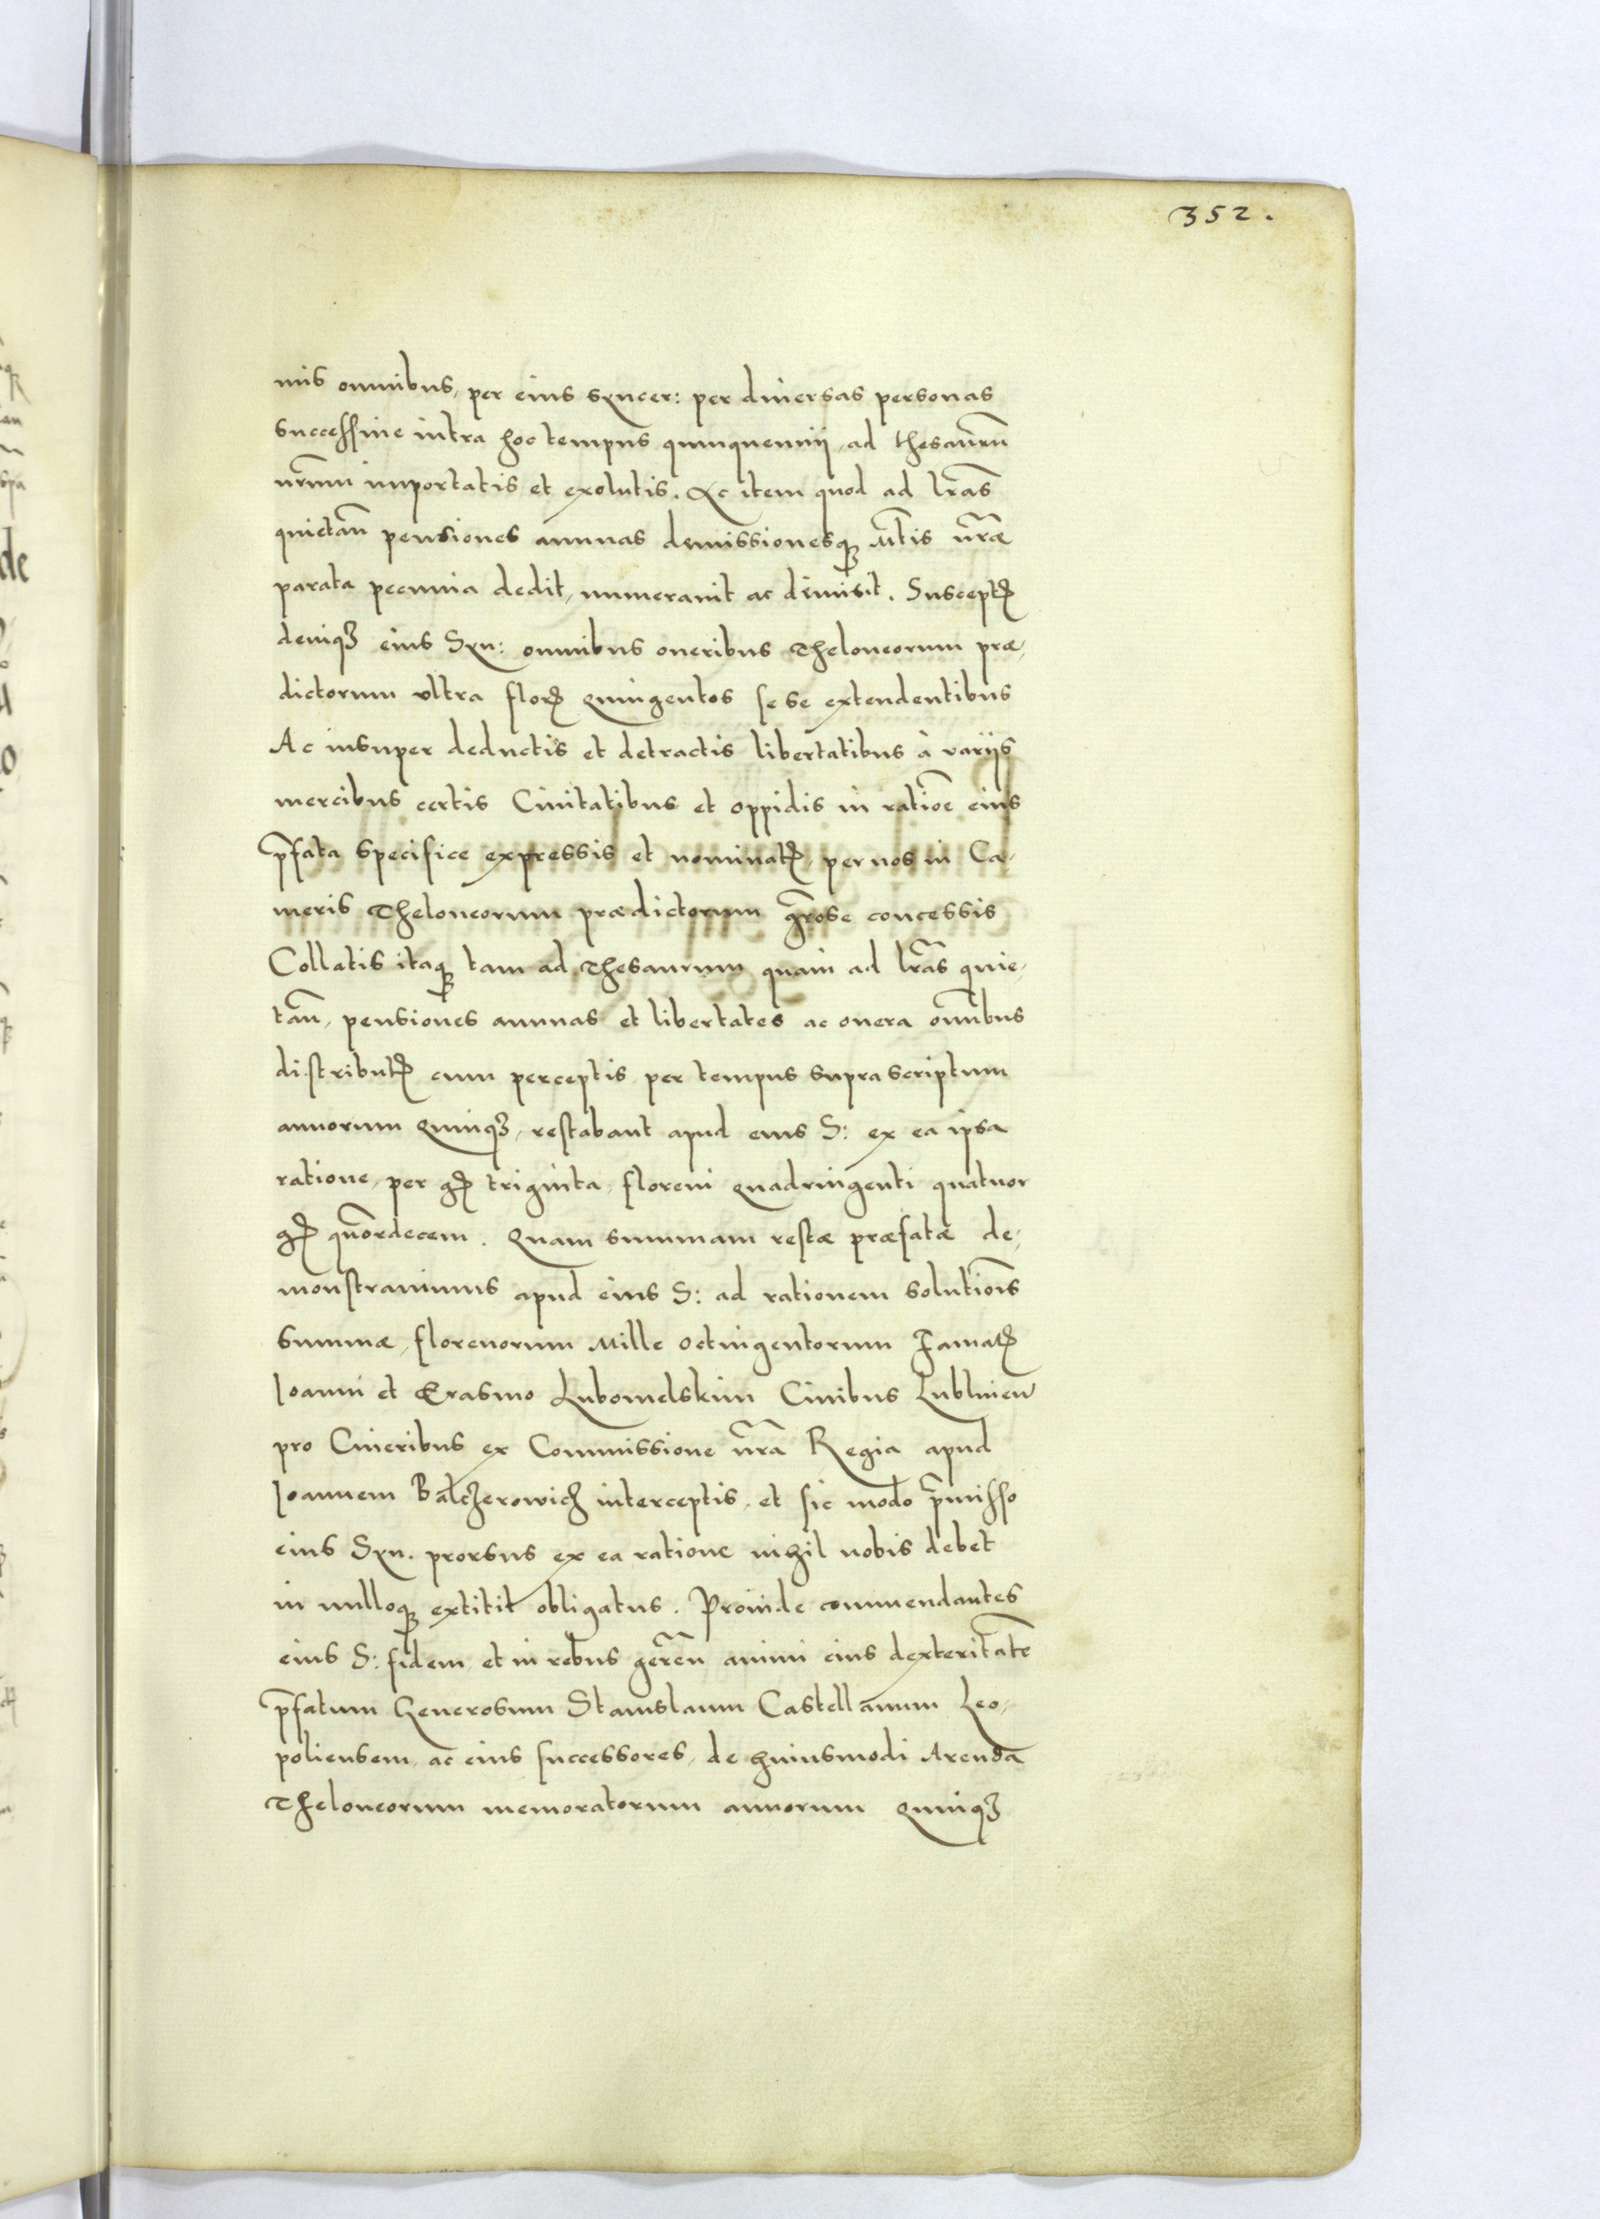 352.
mis omnibus, per eius syncer: per diuersas personas
successiue intra hoc tempus quinquennij, ad thesaurũ
nr̃um importatis et exolutis. Ac item quod ad lr̃as
quietañ pensiones annuas demissionesqꝫ Mt̃is nr̃æ
parata pecunia dedit, numerauit ac dimisit. Susceptꝭ
deniqꝫ eius Syn: omnibus oneribus Theloneorum præ,
dictorum vltra florꝭ Quingentos sese extendentibus
Ac insuper deductis et detractis libertatibus à varijs
mercibus certis Ciuitatibus et oppidis in ratioñe eius
p̃fata specifice expressis et nominatꝭ, per nos in Ca,
meris Theloneorum prædictorum gr̃ose concessis
Collatis itaqꝫ tam ad Thesaurum quam ad lr̃as quie,
tañ, pensiones annuas et libertates ac onera om̃ibus
distributꝭ cum perceptis per tempus suprascriptum
annorum Quinqꝫ, restabant apud eius S: ex ea ipsa
ratione, per gꝭ triginta, floreni Quadringenti quatuor
gꝭ quõrdecem. Quam summam restæ præfatæ de,
monstrauimus apud eius S: ad rationem solutiõis
summæ, florenorum Mille octingentorum Famatꝭ
Ioanni et Erasmo Lubomelskim Ciuibus Lublinen̄
pro Cineribus ex Commissione nr̃a Regia apud
Ioannem Balczerowicz interceptis, et sic modo p̃misso
eius Syn. prorsus ex ea ratione nihil nobis debet
in nulloqꝫ extitit obligatus. Proinde commendantes
eius S: fidem, et in rebus gereñ animi eius dexteritatẽ
p̃fatum Generosum Stanislaum Castellanum Leo,
poliensem, ac eius successores, de huiusmodi Arenda
Theloneorum memoratorum annorum Quinqꝫ